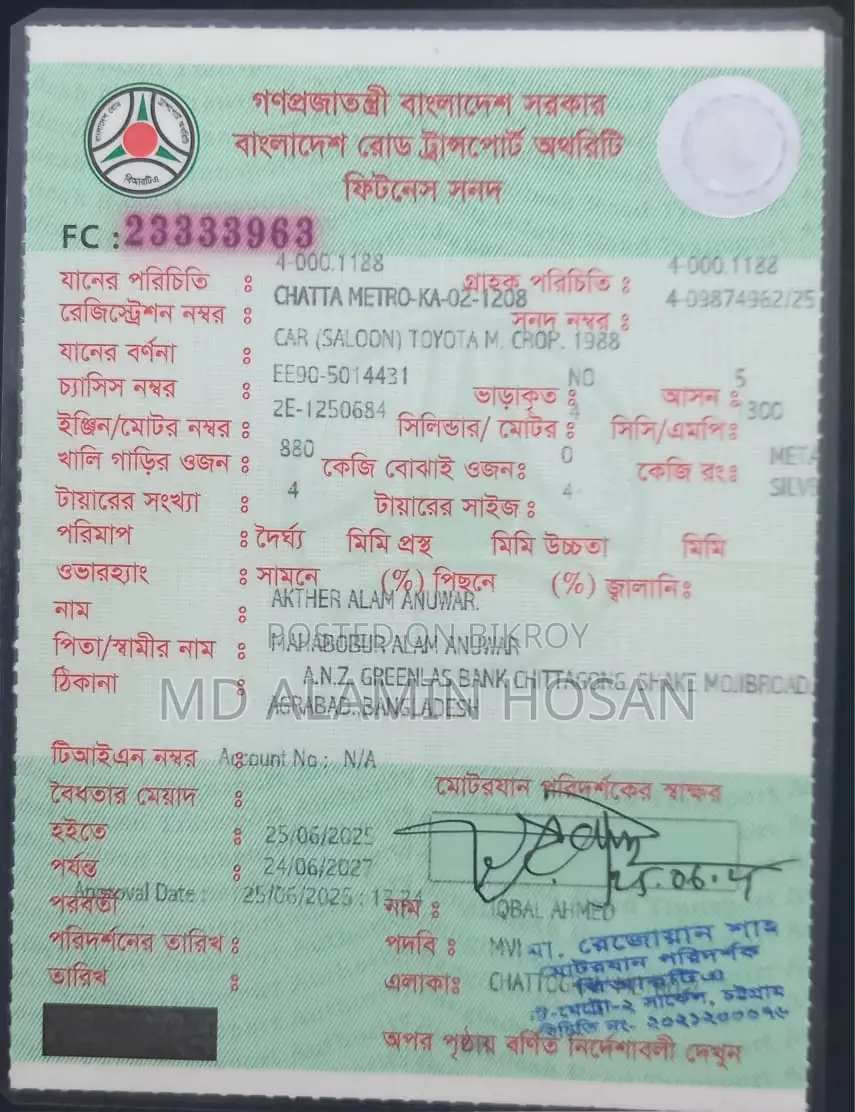 গণপ্রজাতন্ত্রী বাংলাদেশ সরকার
বাংলাদেশ রোড ট্রান্সপোর্ট অথরিটি
ফিটনেস সনদ
বিআরটিএ
FC : 23333963
যানের পরিচিতি : 4-000.1188 গ্রাহক পরিচিতি : 4-000.1188
রেজিস্ট্রেশন নম্বর : CHATTA METRO-KA-02-1208 সনদ নম্বর : 4-09874962/25
যানের বর্ণনা : CAR (SALOON) TOYOTA M. CROP. 1988
চ্যাসিস নম্বর : EE90-5014431 ভাড়াকৃত : NO আসন : 5
ইঞ্জিন/মোটর নম্বর : 2E-1250684 সিলিন্ডার/ মোটর : 4 সিসি/এমপি: 300
খালি গাড়ির ওজন : 880 কেজি বোঝাই ওজন: 0 কেজি রং: META
SILVE
টায়ারের সংখ্যা : 4 টায়ারের সাইজ : 4
পরিমাপ : দৈর্ঘ্য মিমি প্রস্থ মিমি উচ্চতা মিমি
ওভারহ্যাং : সামনে (%) পিছনে (%) জ্বালানি:
নাম : AKTHER ALAM ANUWAR.
POSTED ON BIKROY
পিতা/স্বামীর নাম : MAHABOBUR ALAM ANUWAR
ঠিকানা : A.N.Z. GREENLAS BANK CHITTAGONG. SHAKE MOJIBROAD
MD ALAMIN HOSAN
AGRABAD. BANGLADESH
টিআইএন নম্বর Account No : N/A
বৈধতার মেয়াদ : মোটরযান পরিদর্শকের স্বাক্ষর
হইতে : 25/06/2025
পর্যন্ত : 24/06/2027
25.06.
পরবর্তী Approval Date : 25/06/2025 : নাম : IQBAL AHMED
পরিদর্শনের তারিখ : পদবি : MVI
তারিখ : এলাকা: CHATTOG
মোঃ রেজোয়ান শাহ
মোটরযান পরিদর্শক
বিআরটিএ
চট্ট-মেট্রো-২ সার্কেল, চট্টগ্রাম
অপর পৃষ্ঠায় বর্ণিত নির্দেশাবলী দেখুন